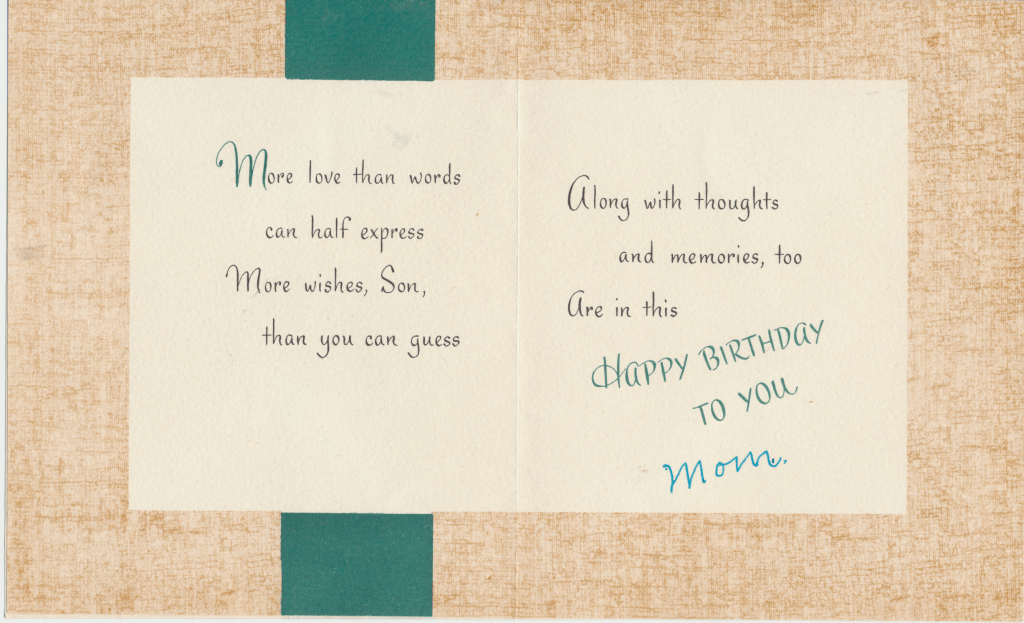 More love than words
can half express
More wishes, Son,
than you can guess
Along with thoughts
and memories, too
Are in this
HAPPY BIRTHDAY
TO YOU
Mom.